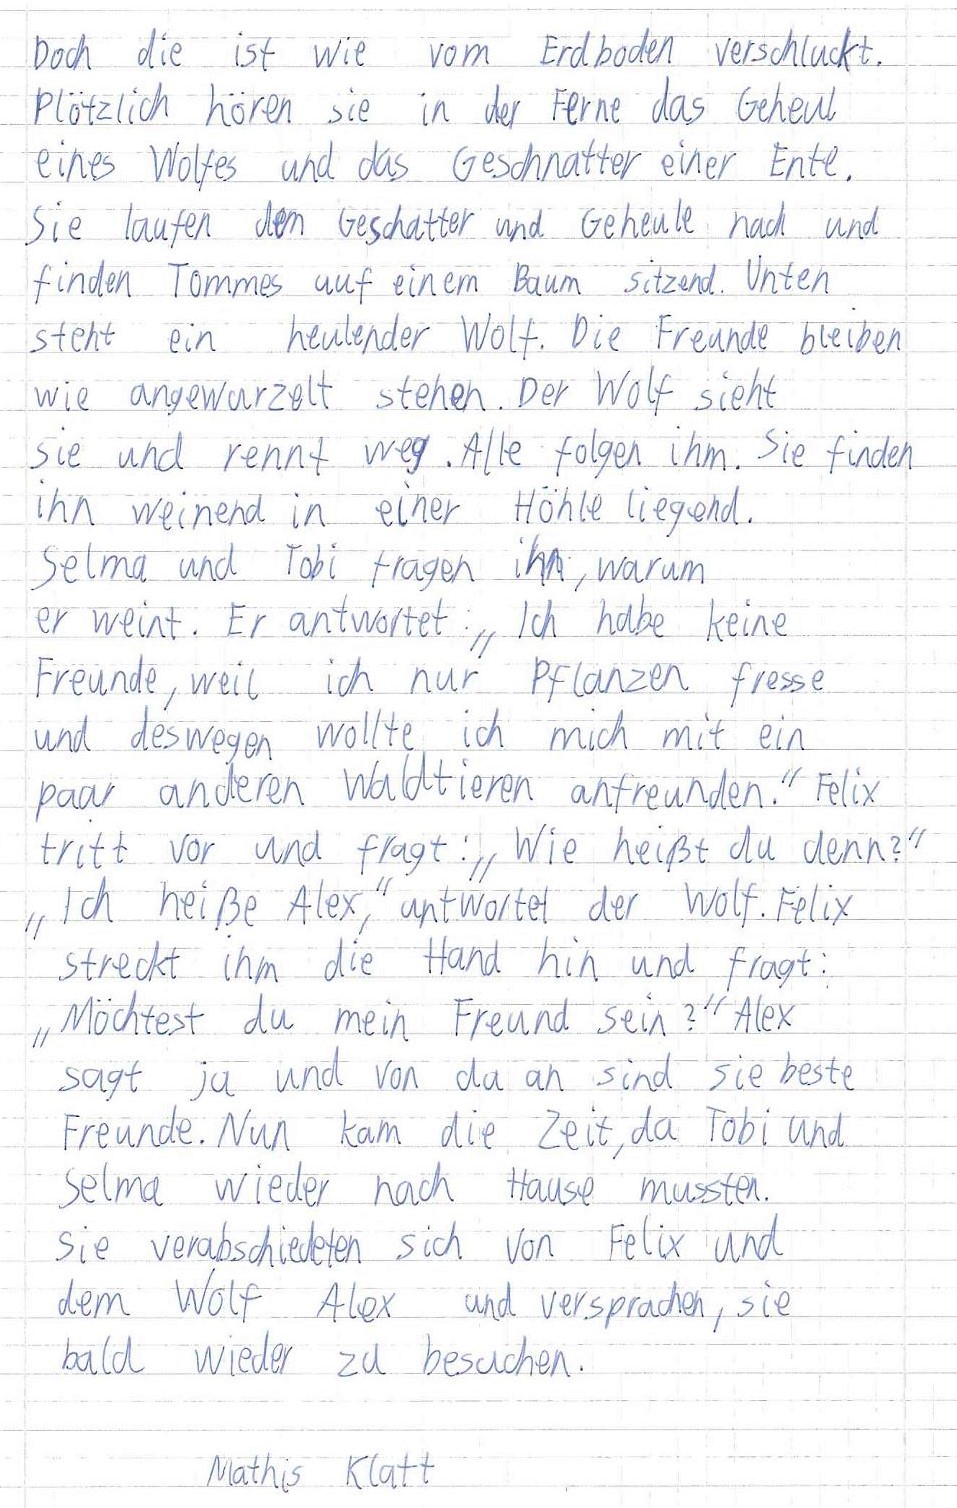 Doch die ist wie vom Erdboden verschluckt.
Plötzlich hören sie in der Ferne das Geheul
eines Wolfes und das Geschnatter einer Ente.
Sie laufen dem Geschatter und Geheule nach und
finden Tommes auf einem Baum sitzend. Unten
steht ein heulender Wolf. Die Freunde bleiben
wie angewurzelt stehen. Der Wolf sieht
sie und rennt weg. Alle folgen ihm. Sie finden
ihn weinend in einer Höhle liegend.
Selma und Tobi fragen ihn, warum
er weint. Er antwortet: „Ich habe keine
Freunde, weil ich nur Pflanzen fresse
und deswegen wollte ich mich mit ein
paar anderen Waldtieren anfreunden.“ Felix
tritt vor und fragt: „Wie heißt du denn?“
„Ich heiße Alex,“ antwortet der Wolf. Felix
streckt ihm die Hand hin und fragt:
„Möchtest du mein Freund sein?“ Alex
sagt ja und von da an sind sie beste
Freunde. Nun kam die Zeit, da Tobi und
Selma wieder nach Hause mussten.
Sie verabschiedeten sich von Felix und
dem Wolf Alex und versprachen, sie
bald wieder zu besuchen.
Mathis Klatt